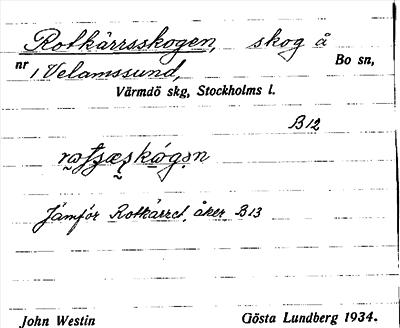 Rotkärrsskogen, skog å
nr 1 Velamssund, Bo sn,
Värmdö skg, Stockholms l.
B12
Jämför Rotkärret, åker B13
John Westin Gösta Lundberg 1934.